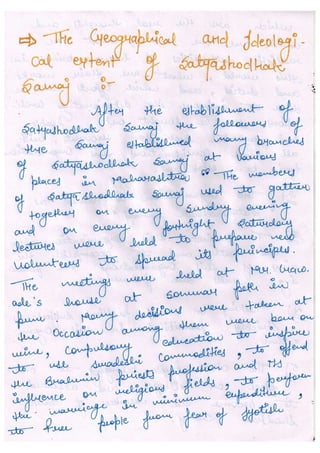 ⇒ The Geographical and Ideologi-
cal extent of Satyashodhak
Samaj :-
After the establishment of
Satyashodhak Samaj the followers of
the Samaj established many branches
of Satyashodhak Samaj at various
places in Maharashtra. The members
of Satya Shodhak Samaj used to gather
together on every Sunday evening
and on every fortnight Saturday
lectures were held to prepare new
volunteers to spread its principles.
The meetings were held at Mr. Harc.
ade's house at Somwar Peth in
Pune many decisions were taken at
the occasion among them were ban on
wine, compulsory education to inspire
to use swadeshi commodities, to offend
the Brahmin priests profession and its
influence on religious fields, to perform
the marriage in minimum expenditure,
to free people from fear of Jyotish